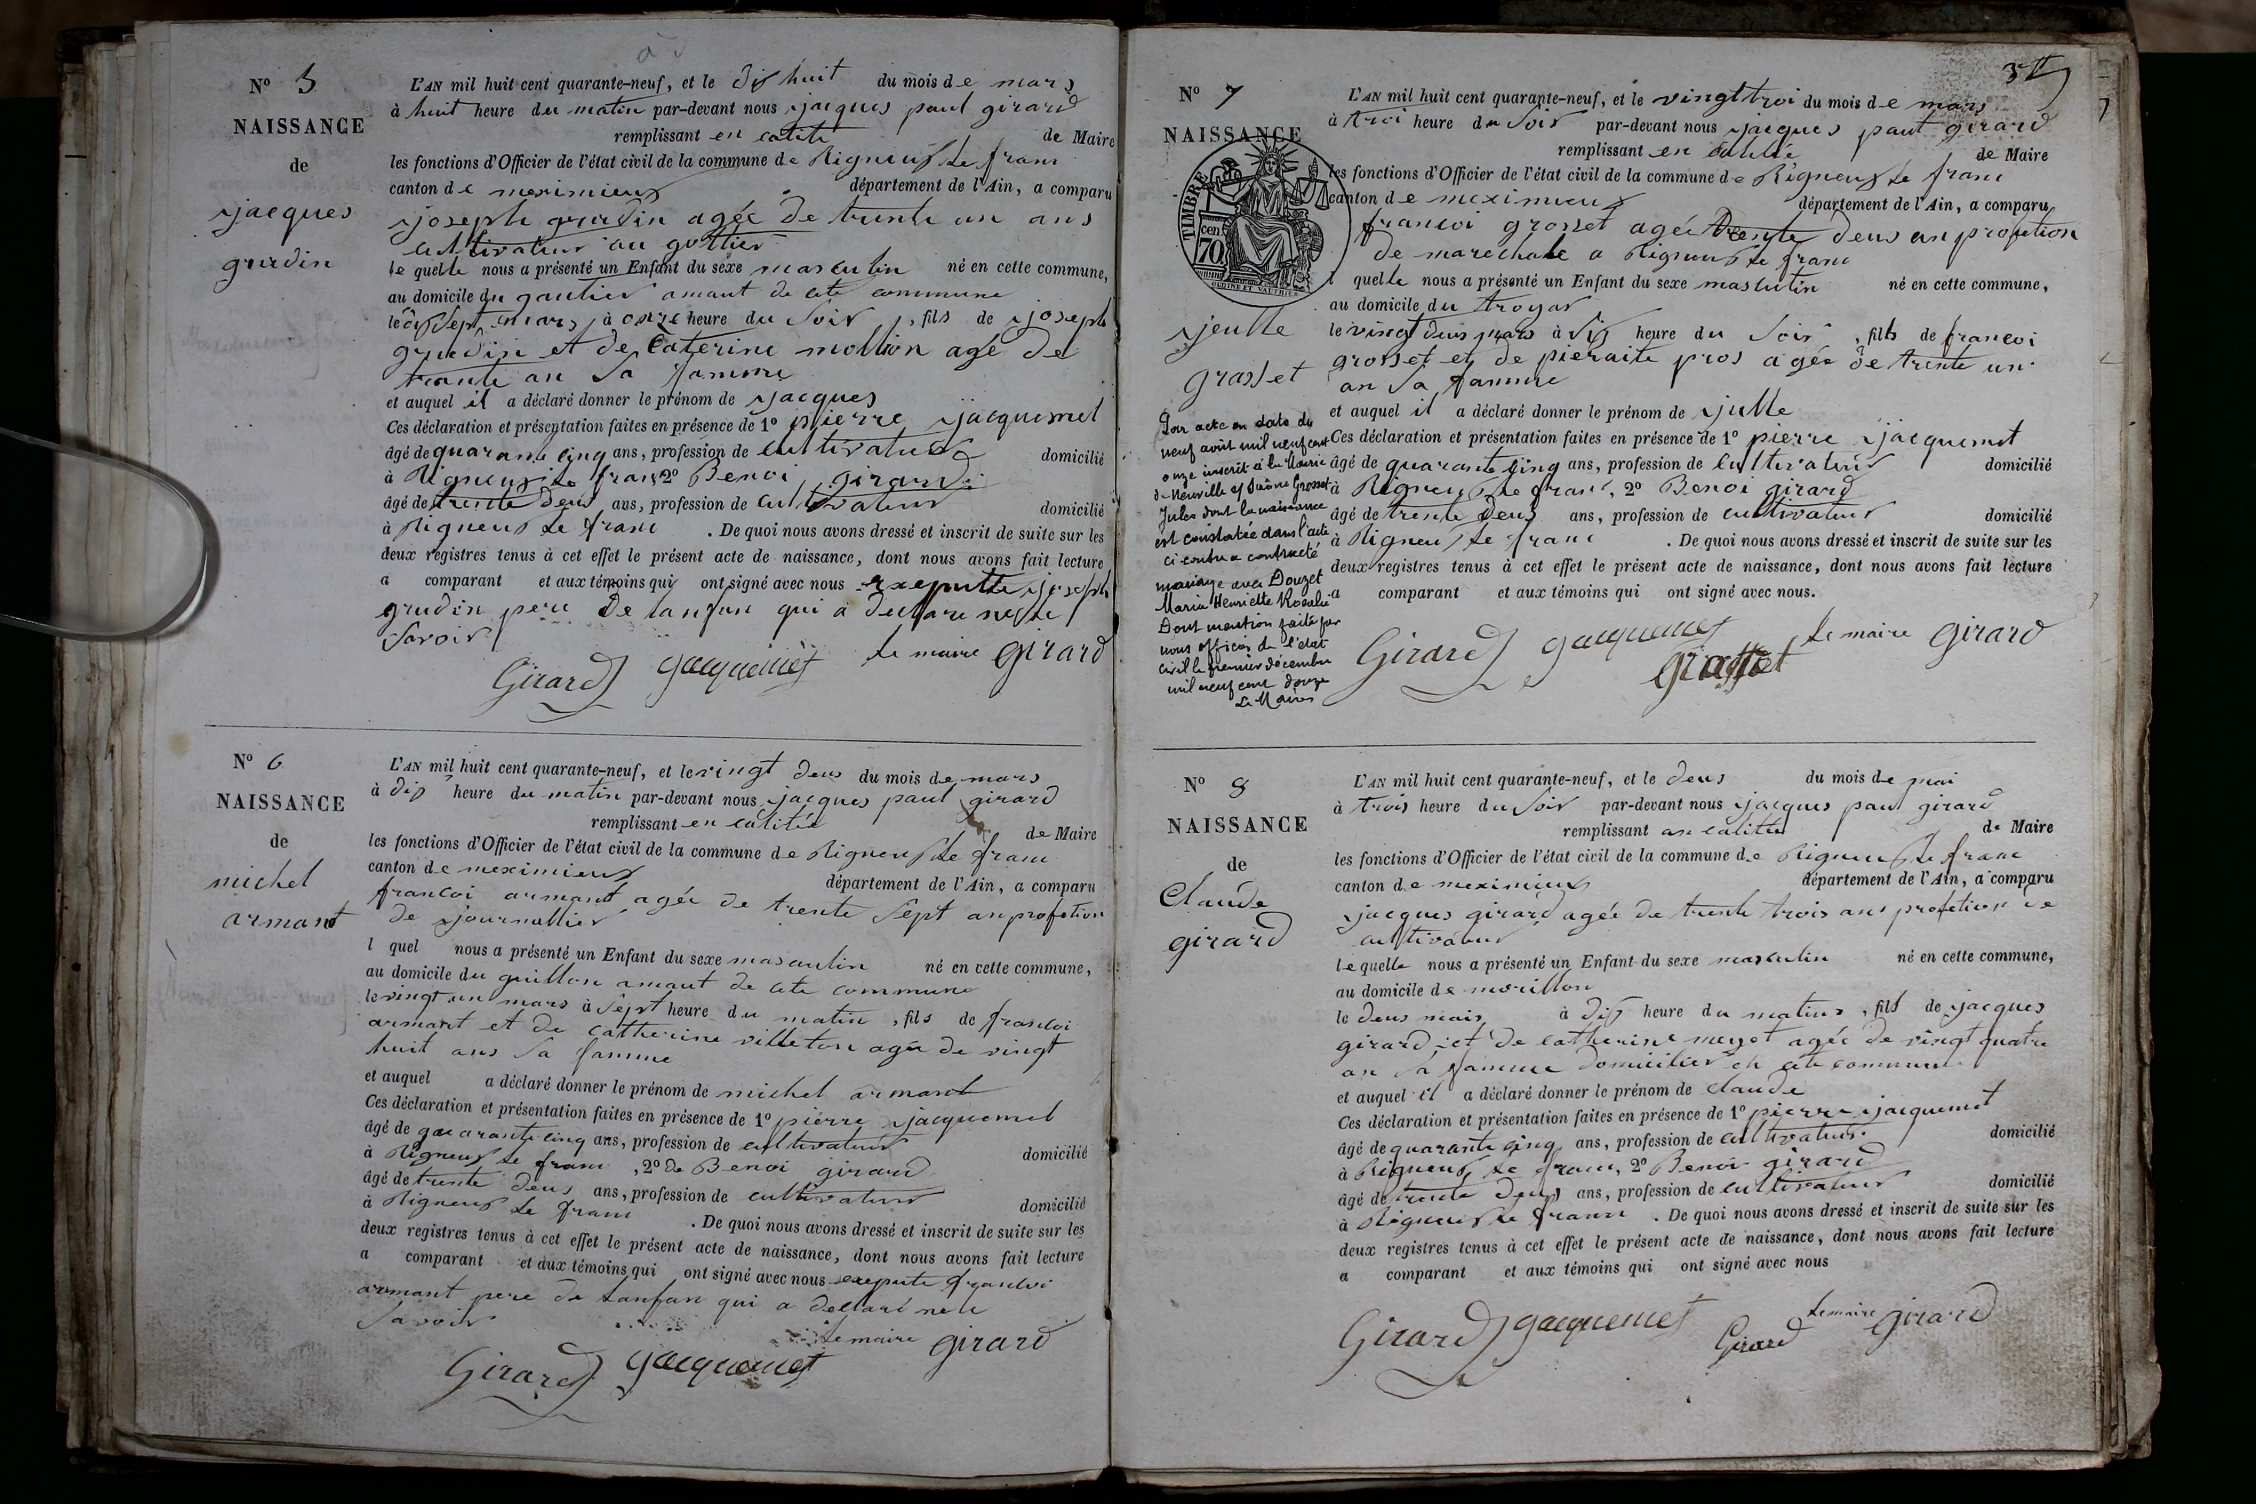 Nº 5
NAISSANCE
de
jacques
grudin
L'AN mil huit cent quarante-neuf, et le dix huit du mois de mars
à huit heure du matin par-devant nous jacques paul girard
remplissant en calité de Maire
les fonctions d'Officier de l'état civil de la commune de Rigneux le franc
canton de meximieux département de l'Ain, a comparu
joseph grudin agée de trente un ans
cultivateur au guttier
le quelle nous a présenté un Enfant du sexe masculin né en cette commune,
au domicile du gautier amaut de cete commune
le dix sept mars à onze heure du soir, fils de joseph
grudin et de Caterine mollion age de
trante an sa famme
et auquel il a déclaré donner le prénom de jacques
Ces déclaration et présentation faites en présence de 1º pierre jacquemet
âgé de quarante cinq ans, profession de cultivateur domicilié
à Rigneux le franc 2º Benoi girard
âgé de trente deux ans, profession de cultivateur domicilié
à Rigneux le franc. De quoi nous avons dressé et inscrit de suite sur les
deux registres tenus à cet effet le présent acte de naissance, dont nous avons fait lecture
a comparant et aux témoins qui ont signé avec nous exeputte joseph
grudin pere de lanfan qui a declare ne le
savoir
Girard jacquemet le maire girard
Nº 6
NAISSANCE
de
michel
armant
L'AN mil huit cent quarante-neuf, et le vingt deus du mois de mars
à dix heure du matin par-devant nous jacques paul girard
remplissant en calitée de Maire
les fonctions d'Officier de l'état civil de la commune de Rigneux le franc
canton de meximieux département de l'Ain, a comparu
francoi armant agée de trente sept an profetion
de journallier
l quel nous a présenté un Enfant du sexe masculin né en cette commune,
au domicile du guillon amaut de cete commune
le vingt un mars à sept heure du matin, fils de francoi
armant et de catherine villeton agée de vingt
huit ans sa famme
et auquel a déclaré donner le prénom de michel armant
Ces déclaration et présentation faites en présence de 1º pierre jacquemet
âgé de quarante cinq ans, profession de cultivateur domicilié
à Rigneux le franc, 2º de Benoi girard
âgé de trente deus ans, profession de cultivateur domicilié
à Rigneux le franc. De quoi nous avons dressé et inscrit de suite sur les
deux registres tenus à cet effet le présent acte de naissance, dont nous avons fait lecture
a comparant et aux témoins qui ont signé avec nous exepute francoi
armant pere de lanfan qui a declaré ne le
savoir
Girard jacquemet le maire girard
Nº 7
NAISSANCE
TIMBRE
70 cen
jeulle
grosset
Par acte en date du
neuf août mil neuf cent
onze inscrit à la Mairie
de Neuville s/ Saône Grosset
Jules dont la naissance
est constatée dans l'acte
ci contre a contracté
mariage avec Douzet
Maria Henriette Rosalie
Dont mention faite par
nous officier de l'état
civil le premier décembre
mil neuf cent douze
Le Maire
L'AN mil huit cent quarante-neuf, et le vingt troi du mois de mars
à troi heure du soir par-devant nous jacques paul girard
remplissant en calitée de Maire
les fonctions d'Officier de l'état civil de la commune de Rigneux le franc
canton de meximieux département de l'Ain, a comparu
francoi grosset agée trente deus an profetion
de marechale a Rigneux le franc
l quelle nous a présenté un Enfant du sexe masculin né en cette commune,
au domicile du troyar
le vingt deus mars à six heure du soir, fils de francoi
grosset et de pieraite pros agée de trente un
an sa famme
et auquel il a déclaré donner le prénom de julle
Ces déclaration et présentation faites en présence de 1º pierre jacquemet
âgé de quarante cinq ans, profession de cultivateur domicilié
à Rigneux le franc, 2º Benoi girard
âgé de trente deus ans, profession de cultivateur domicilié
à Rigneux le franc. De quoi nous avons dressé et inscrit de suite sur les
deux registres tenus à cet effet le présent acte de naissance, dont nous avons fait lecture
a comparant et aux témoins qui ont signé avec nous.
Girard jacquemet le maire girard
Grosset
Nº 8
NAISSANCE
de
Claude
girard
L'AN mil huit cent quarante-neuf, et le deus du mois de mai
à trois heure du soir par-devant nous jacques paul girard
remplissant an calitée de Maire
les fonctions d'Officier de l'état civil de la commune de Rigneux le franc
canton de meximieux département de l'Ain, a comparu
jacques girard agée de trente trois ans profetion de
cultivateur
le quelle nous a présenté un Enfant du sexe masculin né en cette commune,
au domicile de morillon
le deus mais à dix heure du matins, fils de jacques
girard et de catherine meyet agée de vingt quatre
an sa famme domicilier en cete commune
et auquel il a déclaré donner le prénom de claude
Ces déclaration et présentation faites en présence de 1º pierre jacquemet
âgé de quarante cinq ans, profession de cultivateur domicilié
à Rigneux le franc, 2º Benoi girard
âgé de trente deus ans, profession de cultivateur domicilié
à Rigneux le franc. De quoi nous avons dressé et inscrit de suite sur les
deux registres tenus à cet effet le présent acte de naissance, dont nous avons fait lecture
a comparant et aux témoins qui ont signé avec nous
Girard jacquemet Girard le maire girard